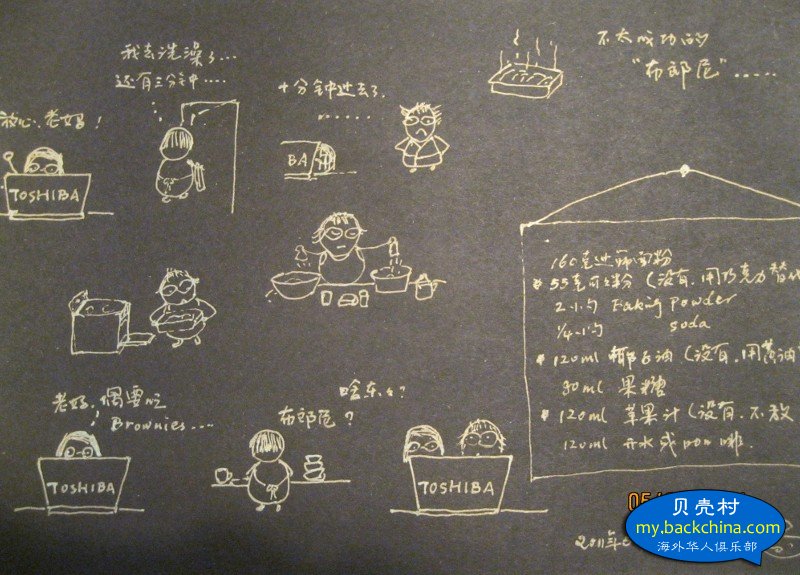 老妈，偶要吃
Brownies....
TOSHIBA
布郎尼？
啥东东？
TOSHIBA
160克过筛面粉
* 55克可可粉（没有，用巧克力替代
2小勺 Baking Powder
1/4小勺 soda
* 120ml 椰子油（没有，用黄油
90ml 果糖
* 120ml 苹果汁（没有，不放
120ml 开水或咖啡.
放心，老妈！
TOSHIBA
我去洗澡了...
还有三分钟....
十分钟过去了.
......
BA
不太成功的
"布郎尼".....
2011年
贝壳村
my.backchina.com
海外华人俱乐部